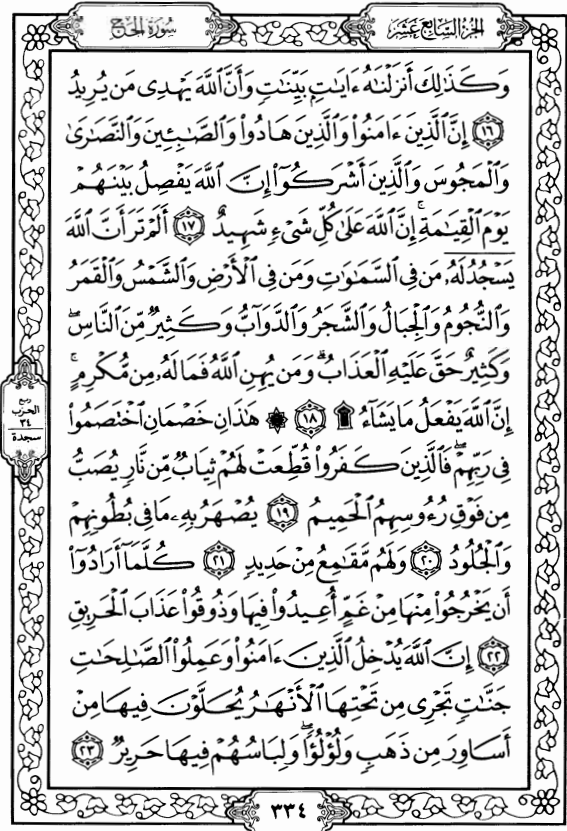 الجزء السابع عشر
سورة الحج
وَكَذَٰلِكَ أَنزَلْنَٰهُ ءَايَٰتٍۭ بَيِّنَٰتٍ وَأَنَّ ٱللَّهَ يَهْدِى مَن يُرِيدُ
۝١٦ إِنَّ ٱلَّذِينَ ءَامَنُوا۟ وَٱلَّذِينَ هَادُوا۟ وَٱلصَّٰبِـِٔينَ وَٱلنَّصَٰرَىٰ
وَٱلْمَجُوسَ وَٱلَّذِينَ أَشْرَكُوٓا۟ إِنَّ ٱللَّهَ يَفْصِلُ بَيْنَهُمْ
يَوْمَ ٱلْقِيَٰمَةِ ۚ إِنَّ ٱللَّهَ عَلَىٰ كُلِّ شَىْءٍ شَهِيدٌ ۝١٧ أَلَمْ تَرَ أَنَّ ٱللَّهَ
يَسْجُدُ لَهُۥ مَن فِى ٱلسَّمَٰوَٰتِ وَمَن فِى ٱلْأَرْضِ وَٱلشَّمْسُ وَٱلْقَمَرُ
وَٱلنُّجُومُ وَٱلْجِبَالُ وَٱلشَّجَرُ وَٱلدَّوَآبُّ وَكَثِيرٌ مِّنَ ٱلنَّاسِ ۖ
وَكَثِيرٌ حَقَّ عَلَيْهِ ٱلْعَذَابُ ۗ وَمَن يُهِنِ ٱللَّهُ فَمَا لَهُۥ مِن مُّكْرِمٍ ۚ
إِنَّ ٱللَّهَ يَفْعَلُ مَا يَشَآءُ ۩ ۝١٨ ۞ هَٰذَانِ خَصْمَانِ ٱخْتَصَمُوا۟
فِى رَبِّهِمْ ۖ فَٱلَّذِينَ كَفَرُوا۟ قُطِّعَتْ لَهُمْ ثِيَابٌ مِّن نَّارٍ يُصَبُّ
مِن فَوْقِ رُءُوسِهِمُ ٱلْحَمِيمُ ۝١٩ يُصْهَرُ بِهِۦ مَا فِى بُطُونِهِمْ
وَٱلْجُلُودُ ۝٢٠ وَلَهُم مَّقَٰمِعُ مِنْ حَدِيدٍ ۝٢١ كُلَّمَآ أَرَادُوٓا۟
أَن يَخْرُجُوا۟ مِنْهَا مِنْ غَمٍّ أُعِيدُوا۟ فِيهَا وَذُوقُوا۟ عَذَابَ ٱلْحَرِيقِ
۝٢٢ إِنَّ ٱللَّهَ يُدْخِلُ ٱلَّذِينَ ءَامَنُوا۟ وَعَمِلُوا۟ ٱلصَّٰلِحَٰتِ
جَنَّٰتٍ تَجْرِى مِن تَحْتِهَا ٱلْأَنْهَٰرُ يُحَلَّوْنَ فِيهَا مِنْ
أَسَاوِرَ مِن ذَهَبٍ وَلُؤْلُؤًا ۖ وَلِبَاسُهُمْ فِيهَا حَرِيرٌ ۝٢٣
ربع
الحزب
٣٤
سجدة
٣٣٤